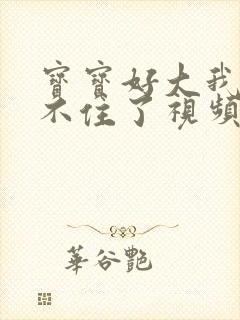 寶寶好大我
不住了視頻
華谷艷